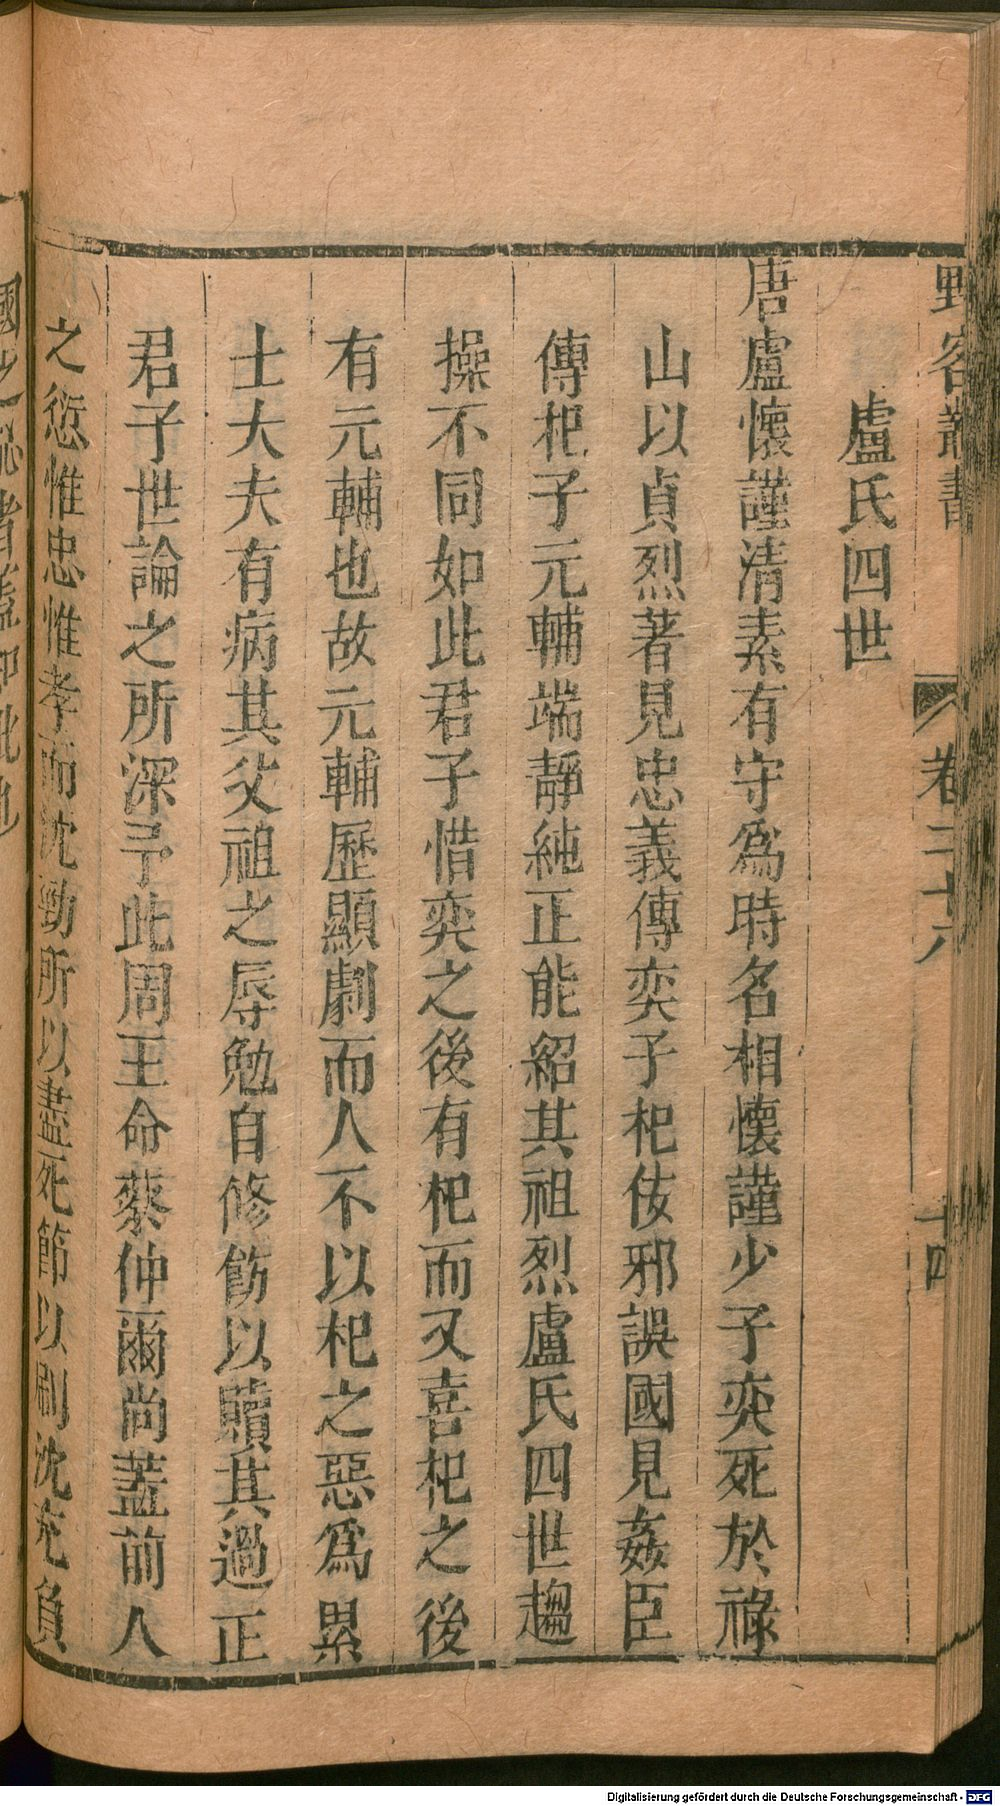 野客叢書
卷二十六
十四
盧氏四世
唐盧懷謹清素有守爲時名相懷謹少子奕死於祿
山以貞烈著見忠義傳奕子杞佞邪誤國見姦臣
傳杞子元輔端靜純正能紹其祖烈盧氏四世趨
操不同如此君子惜奕之後有杞而又喜杞之後
有元輔也故元輔歷顯劇而人不以杞之惡爲累
士大夫有病其父祖之辱勉自修飭以贖其過正
君子世論之所深予此周王命蔡仲爾尚蓋前人
之愆惟忠惟孝而沈勁所以盡死節以刷沈充負
Digitalisierung gefördert durch die Deutsche Forschungsgemeinschaft - DFG